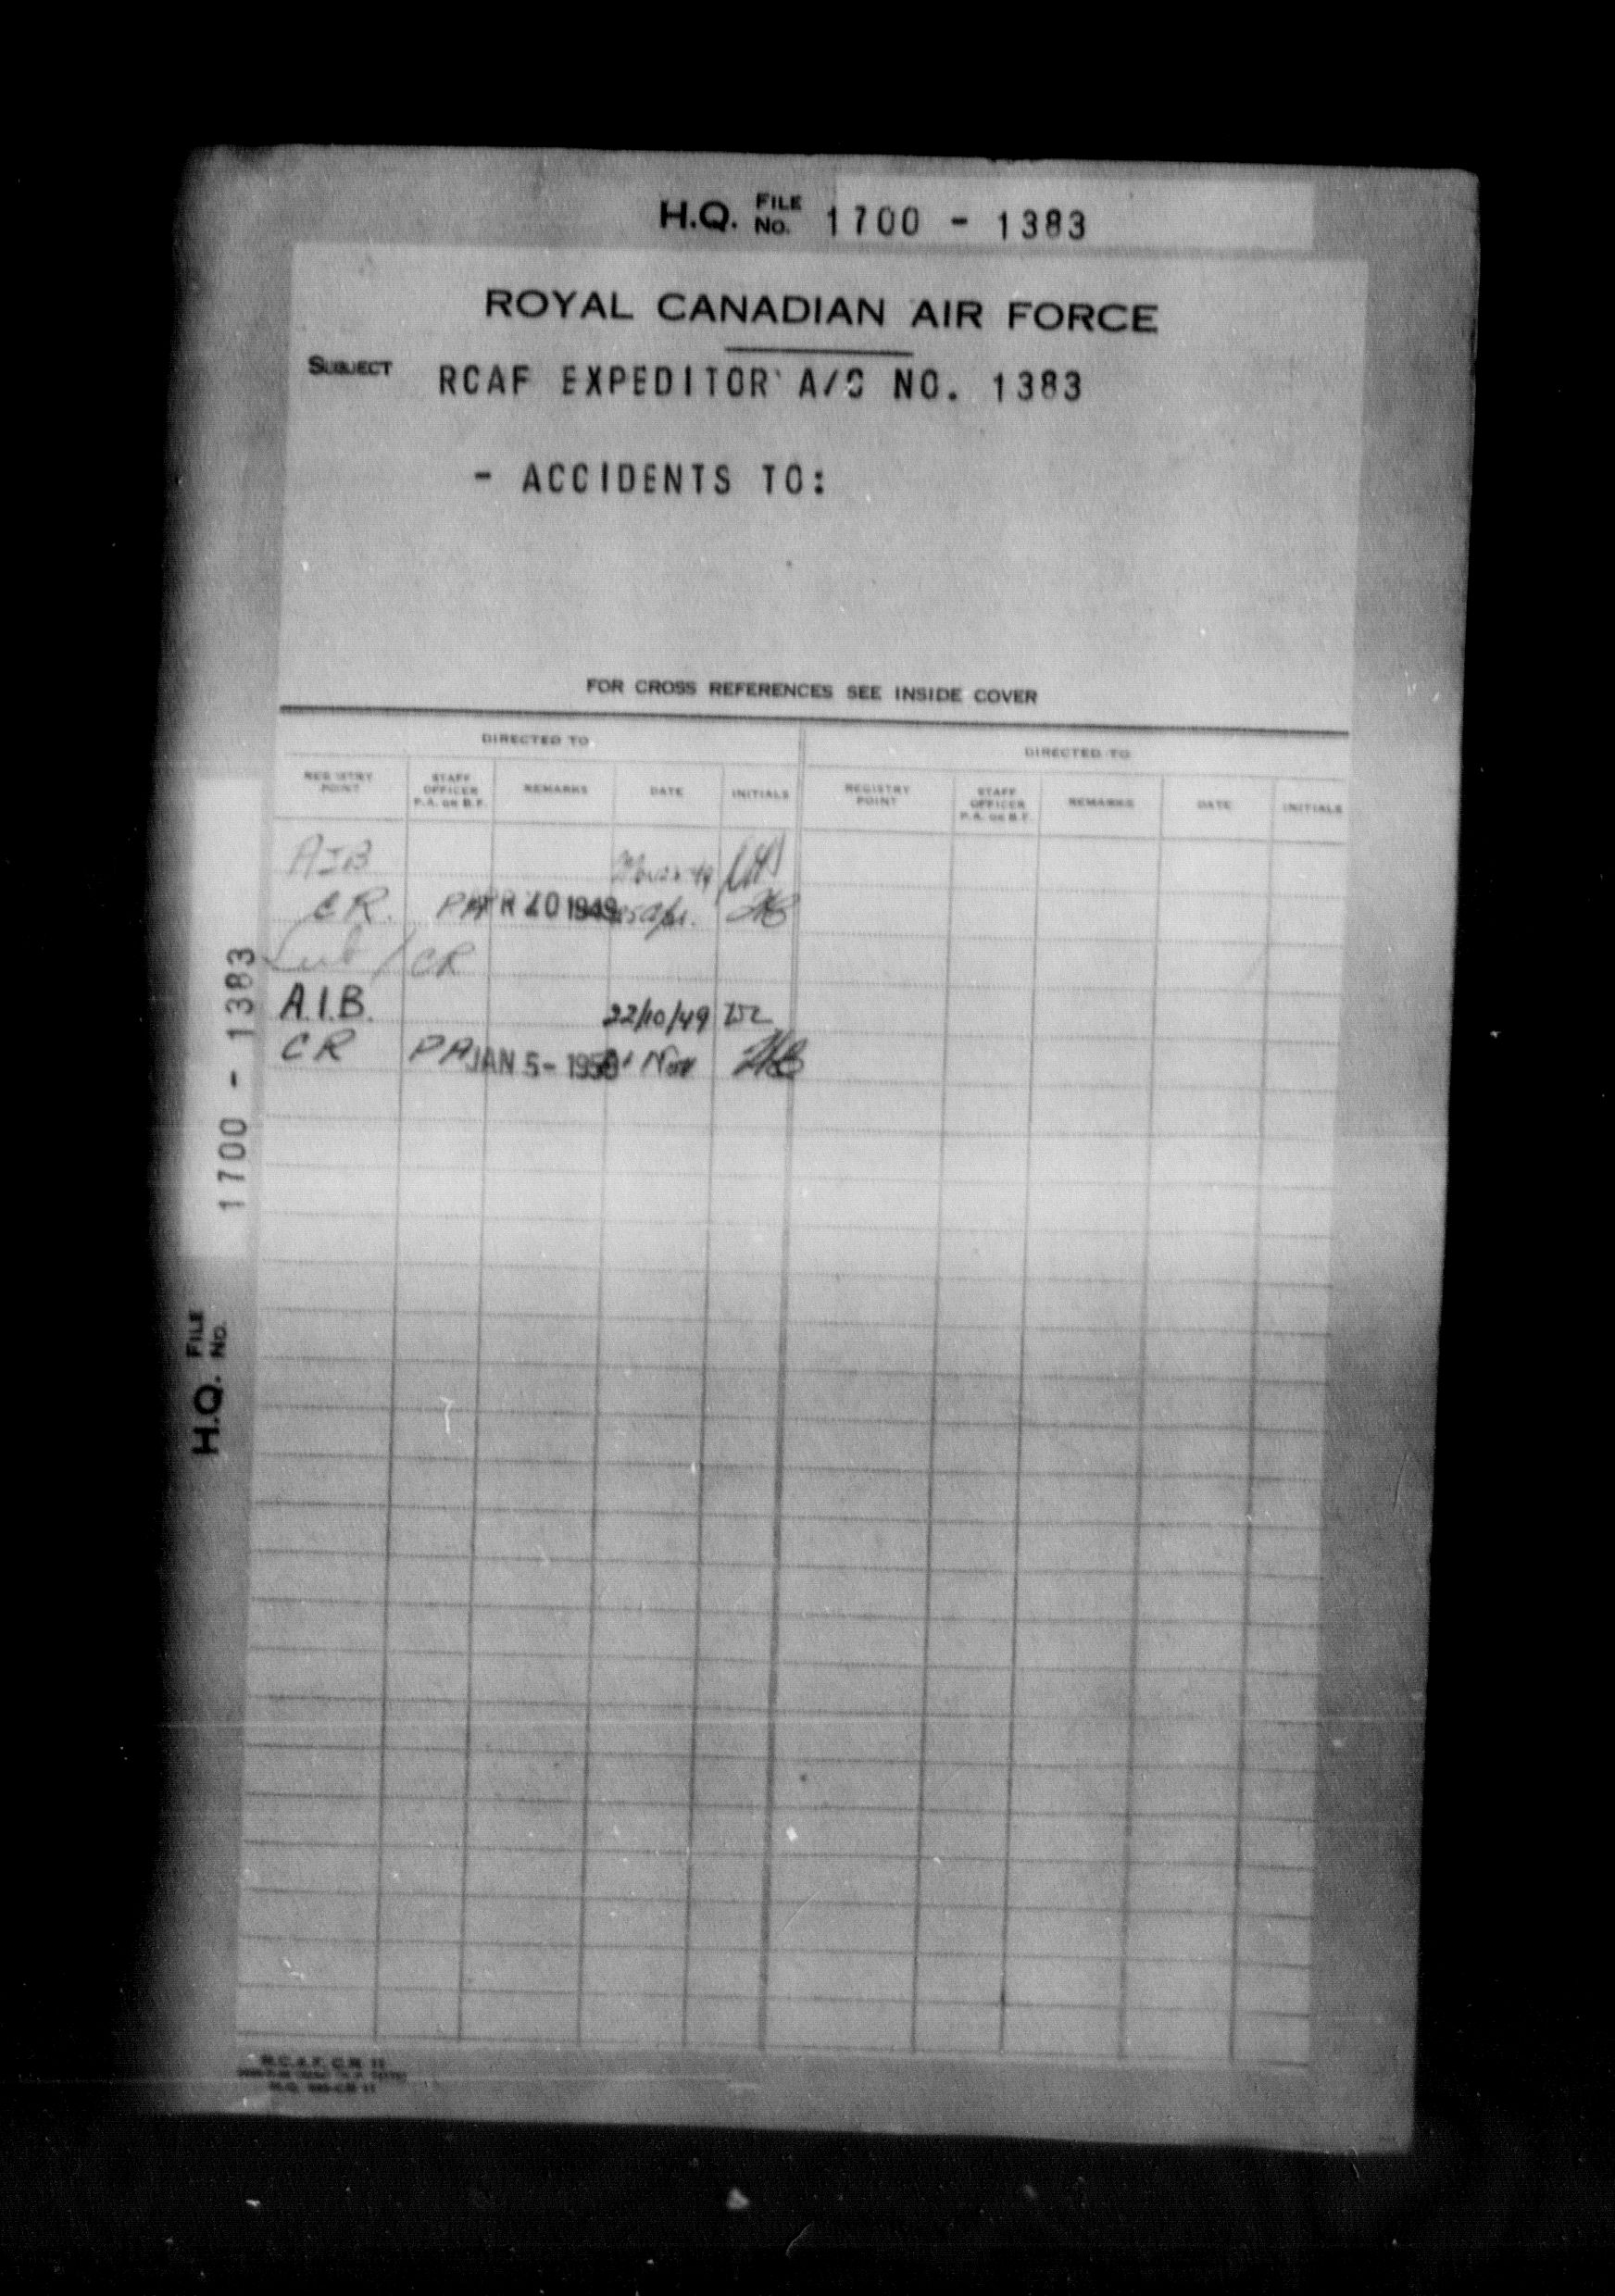 H.Q. FILE No. 1700 - 1383
ROYAL CANADIAN AIR FORCE
SUBJECT RCAF EXPEDITOR A/C NO. 1383
- ACCIDENTS TO:
FOR CROSS REFERENCES SEE INSIDE COVER
DIRECTED TO DIRECTED TO
REGISTRY POINT STAFF OFFICER P.A. OR B.F. REMARKS DATE INITIALS REGISTRY POINT STAFF OFFICER P.A. OR B.F. REMARKS DATE INITIALS
AIB
CR. PA APR 20 1949
CR
A.I.B. 22/10/49
CR PA JAN 5- 1950 Nov
H.Q. FILE No. 1700 - 1383
R.C.A.F. C.R. 11